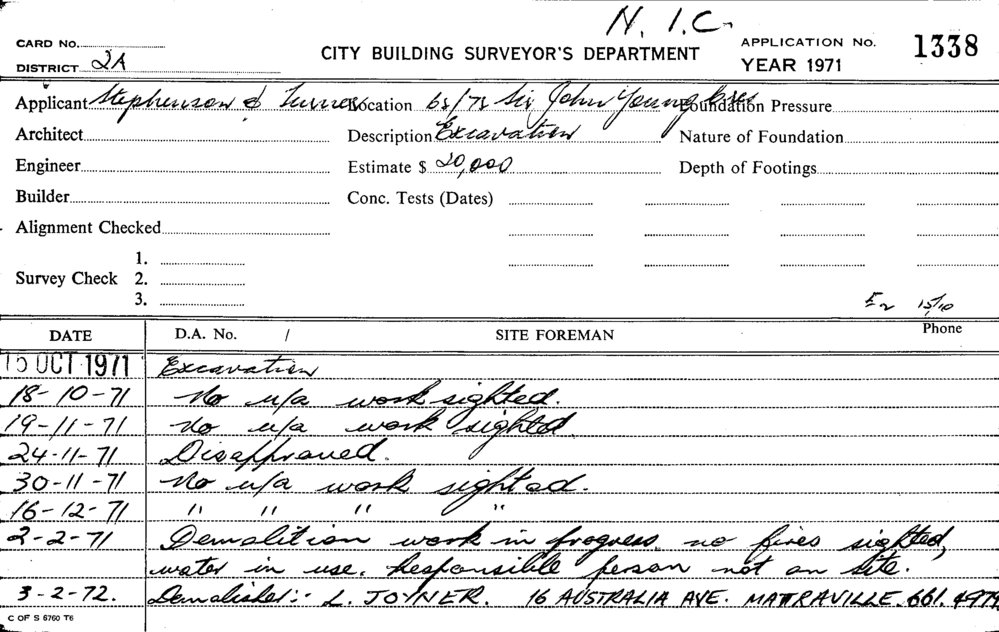 N.I.C.
CARD No.
DISTRICT 2A
CITY BUILDING SURVEYOR'S DEPARTMENT
APPLICATION No. 1338
YEAR 1971
Applicant Stephenson & Turner Location 65/75 Sir John Young Cres Foundation Pressure
Architect Description Excavation Nature of Foundation
Engineer Estimate $ 20,000 Depth of Footings
Builder Conc. Tests (Dates)
Alignment Checked
Survey Check 1.
2.
3.
15/10
DATE D.A. No. / SITE FOREMAN Phone
15 OCT 1971 Excavation
18-10-71 No u/a work sighted.
19-11-71 No u/a work sighted
24-11-71 Disapproved.
30-11-71 No u/a work sighted.
16-12-71 " " " "
2-2-71 Demolition work in progress, no fires sighted,
water in use. Responsible person not on site.
3-2-72. Demolisher:- L. JOYNER. 16 AUSTRALIA AVE. MATRAVILLE. 661.4974
C OF S 6760 T6